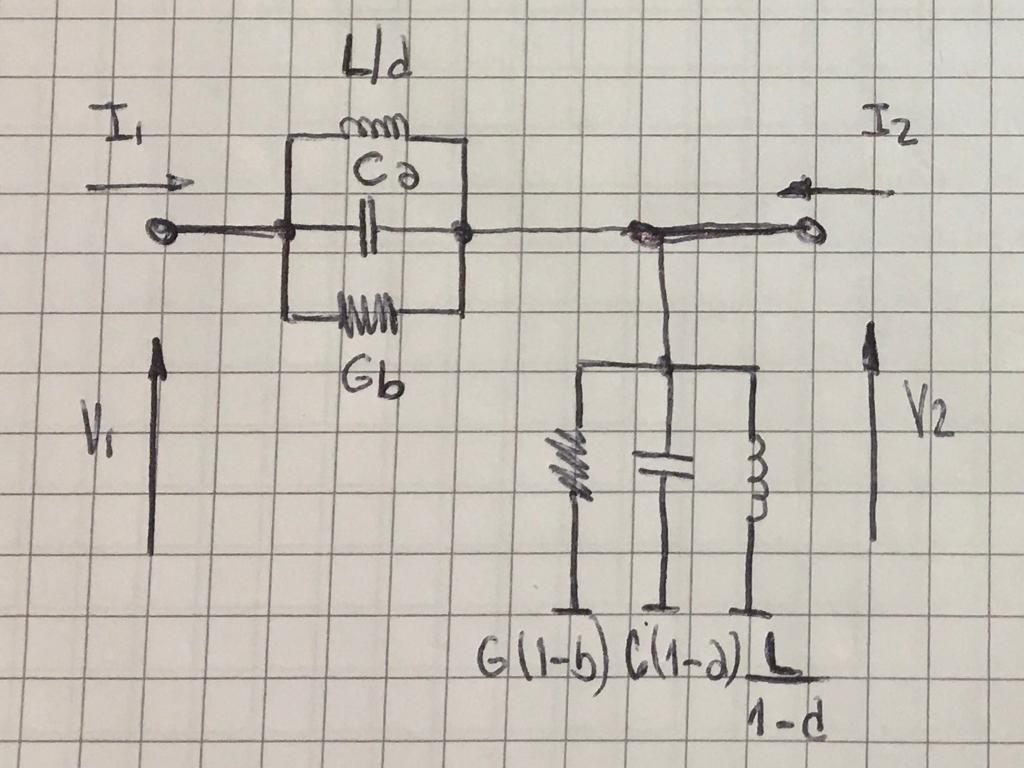 L/d
I1
I2
Ca
Gb
V1
V2
G(1-b) C(1-a) L
1-d